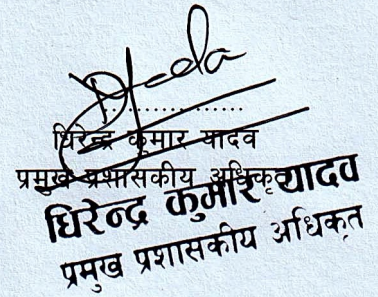 ...............
धिरेन्द्र कुमार यादव
प्रमुख प्रशासकीय अधिकृत
धिरेन्द्र कुमार यादव
प्रमुख प्रशासकीय अधिकृत